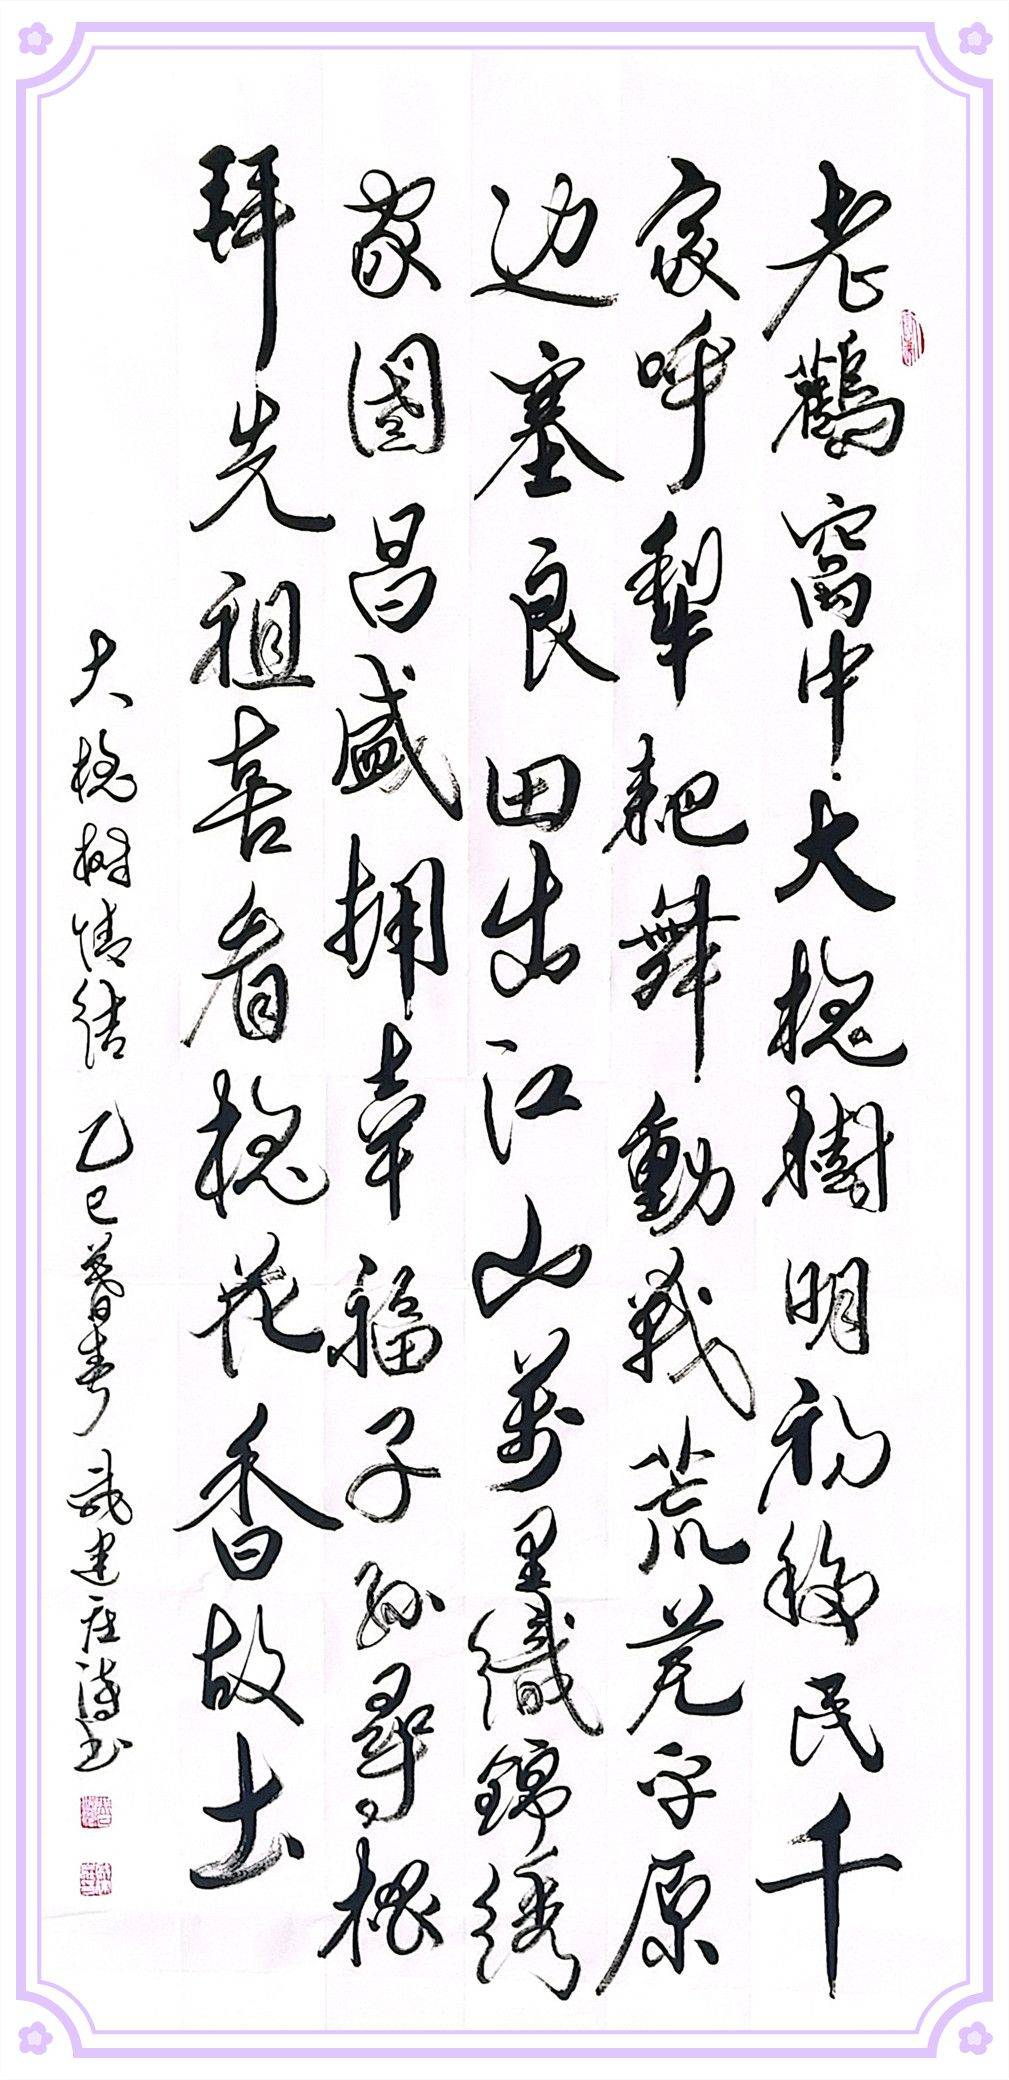 老鸛窩中大槐樹明初移民千
家呼犁耙舞動戰荒荒平原
边塞良田出江山萬里織錦绣
家國昌盛拥幸福子孙尋根
拜先祖喜看槐花香故土
大槐樹情结 乙巳暮春 武建在涛书